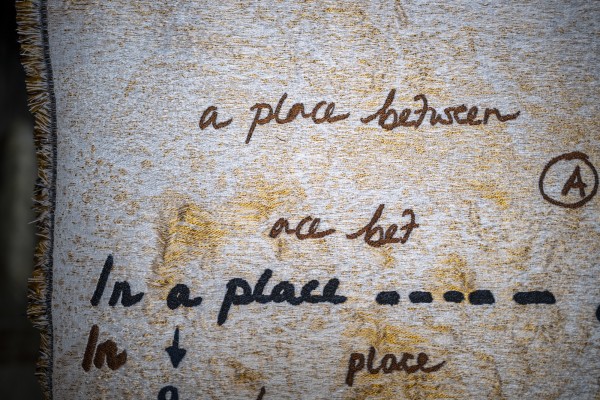 a place between
A
ace bet
In a place
In place